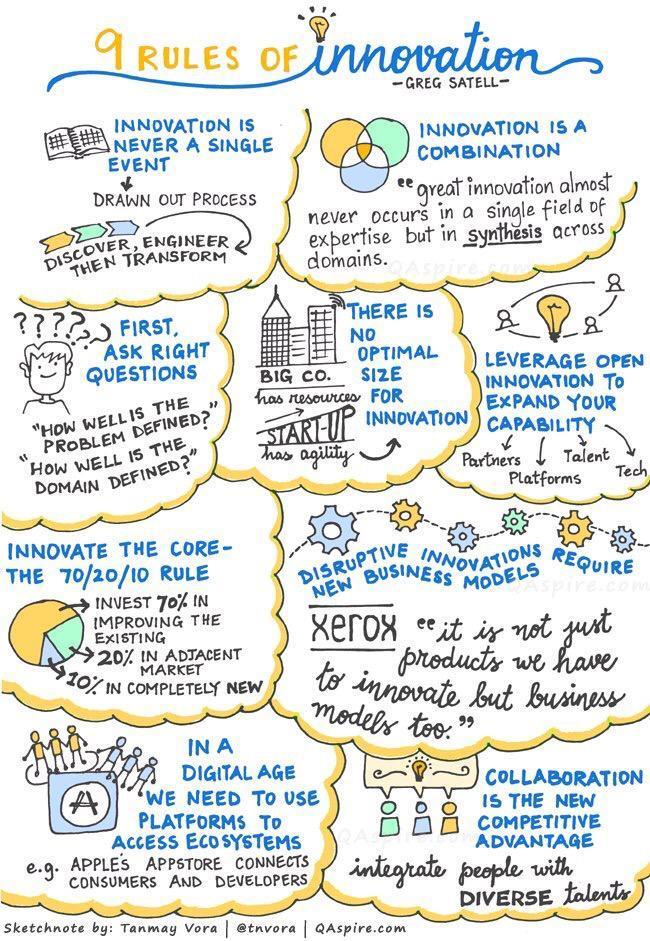 9 RULES OF innovation
-GREG SATELL-
INNOVATION IS
NEVER A SINGLE
EVENT
DRAWN OUT PROCESS
DISCOVER, ENGINEER
THEN TRANSFORM
INNOVATION IS A
COMBINATION
"great innovation almost
never occurs in a single field of
expertise but in synthesis across
domains.
QAspire.com
? ? ? ? ? ?
FIRST,
ASK RIGHT
QUESTIONS
"HOW WELL IS THE
PROBLEM DEFINED?"
"HOW WELL IS THE
DOMAIN DEFINED?"
THERE IS
NO
OPTIMAL
SIZE
FOR
INNOVATION
BIG CO.
has resources
START-UP
has agility
LEVERAGE OPEN
INNOVATION TO
EXPAND YOUR
CAPABILITY
Partners
Platforms
Talent
Tech
INNOVATE THE CORE-
THE 70/20/10 RULE
INVEST 70% IN
IMPROVING THE
EXISTING
20% IN ADJACENT
MARKET
10% IN COMPLETELY NEW
DISRUPTIVE INNOVATIONS REQUIRE
NEW BUSINESS MODELS
QAspire.com
xerox
"it is not just
products we have
to innovate but business
models too."
IN A
DIGITAL AGE
WE NEED TO USE
PLATFORMS TO
ACCESS ECOSYSTEMS
e.g. APPLE'S APPSTORE CONNECTS
CONSUMERS AND DEVELOPERS
COLLABORATION
IS THE NEW
COMPETITIVE
ADVANTAGE
QAspire.com
integrate people with
DIVERSE talents
Sketchnote by: Tanmay Vora | @tnvora | QAspire.com